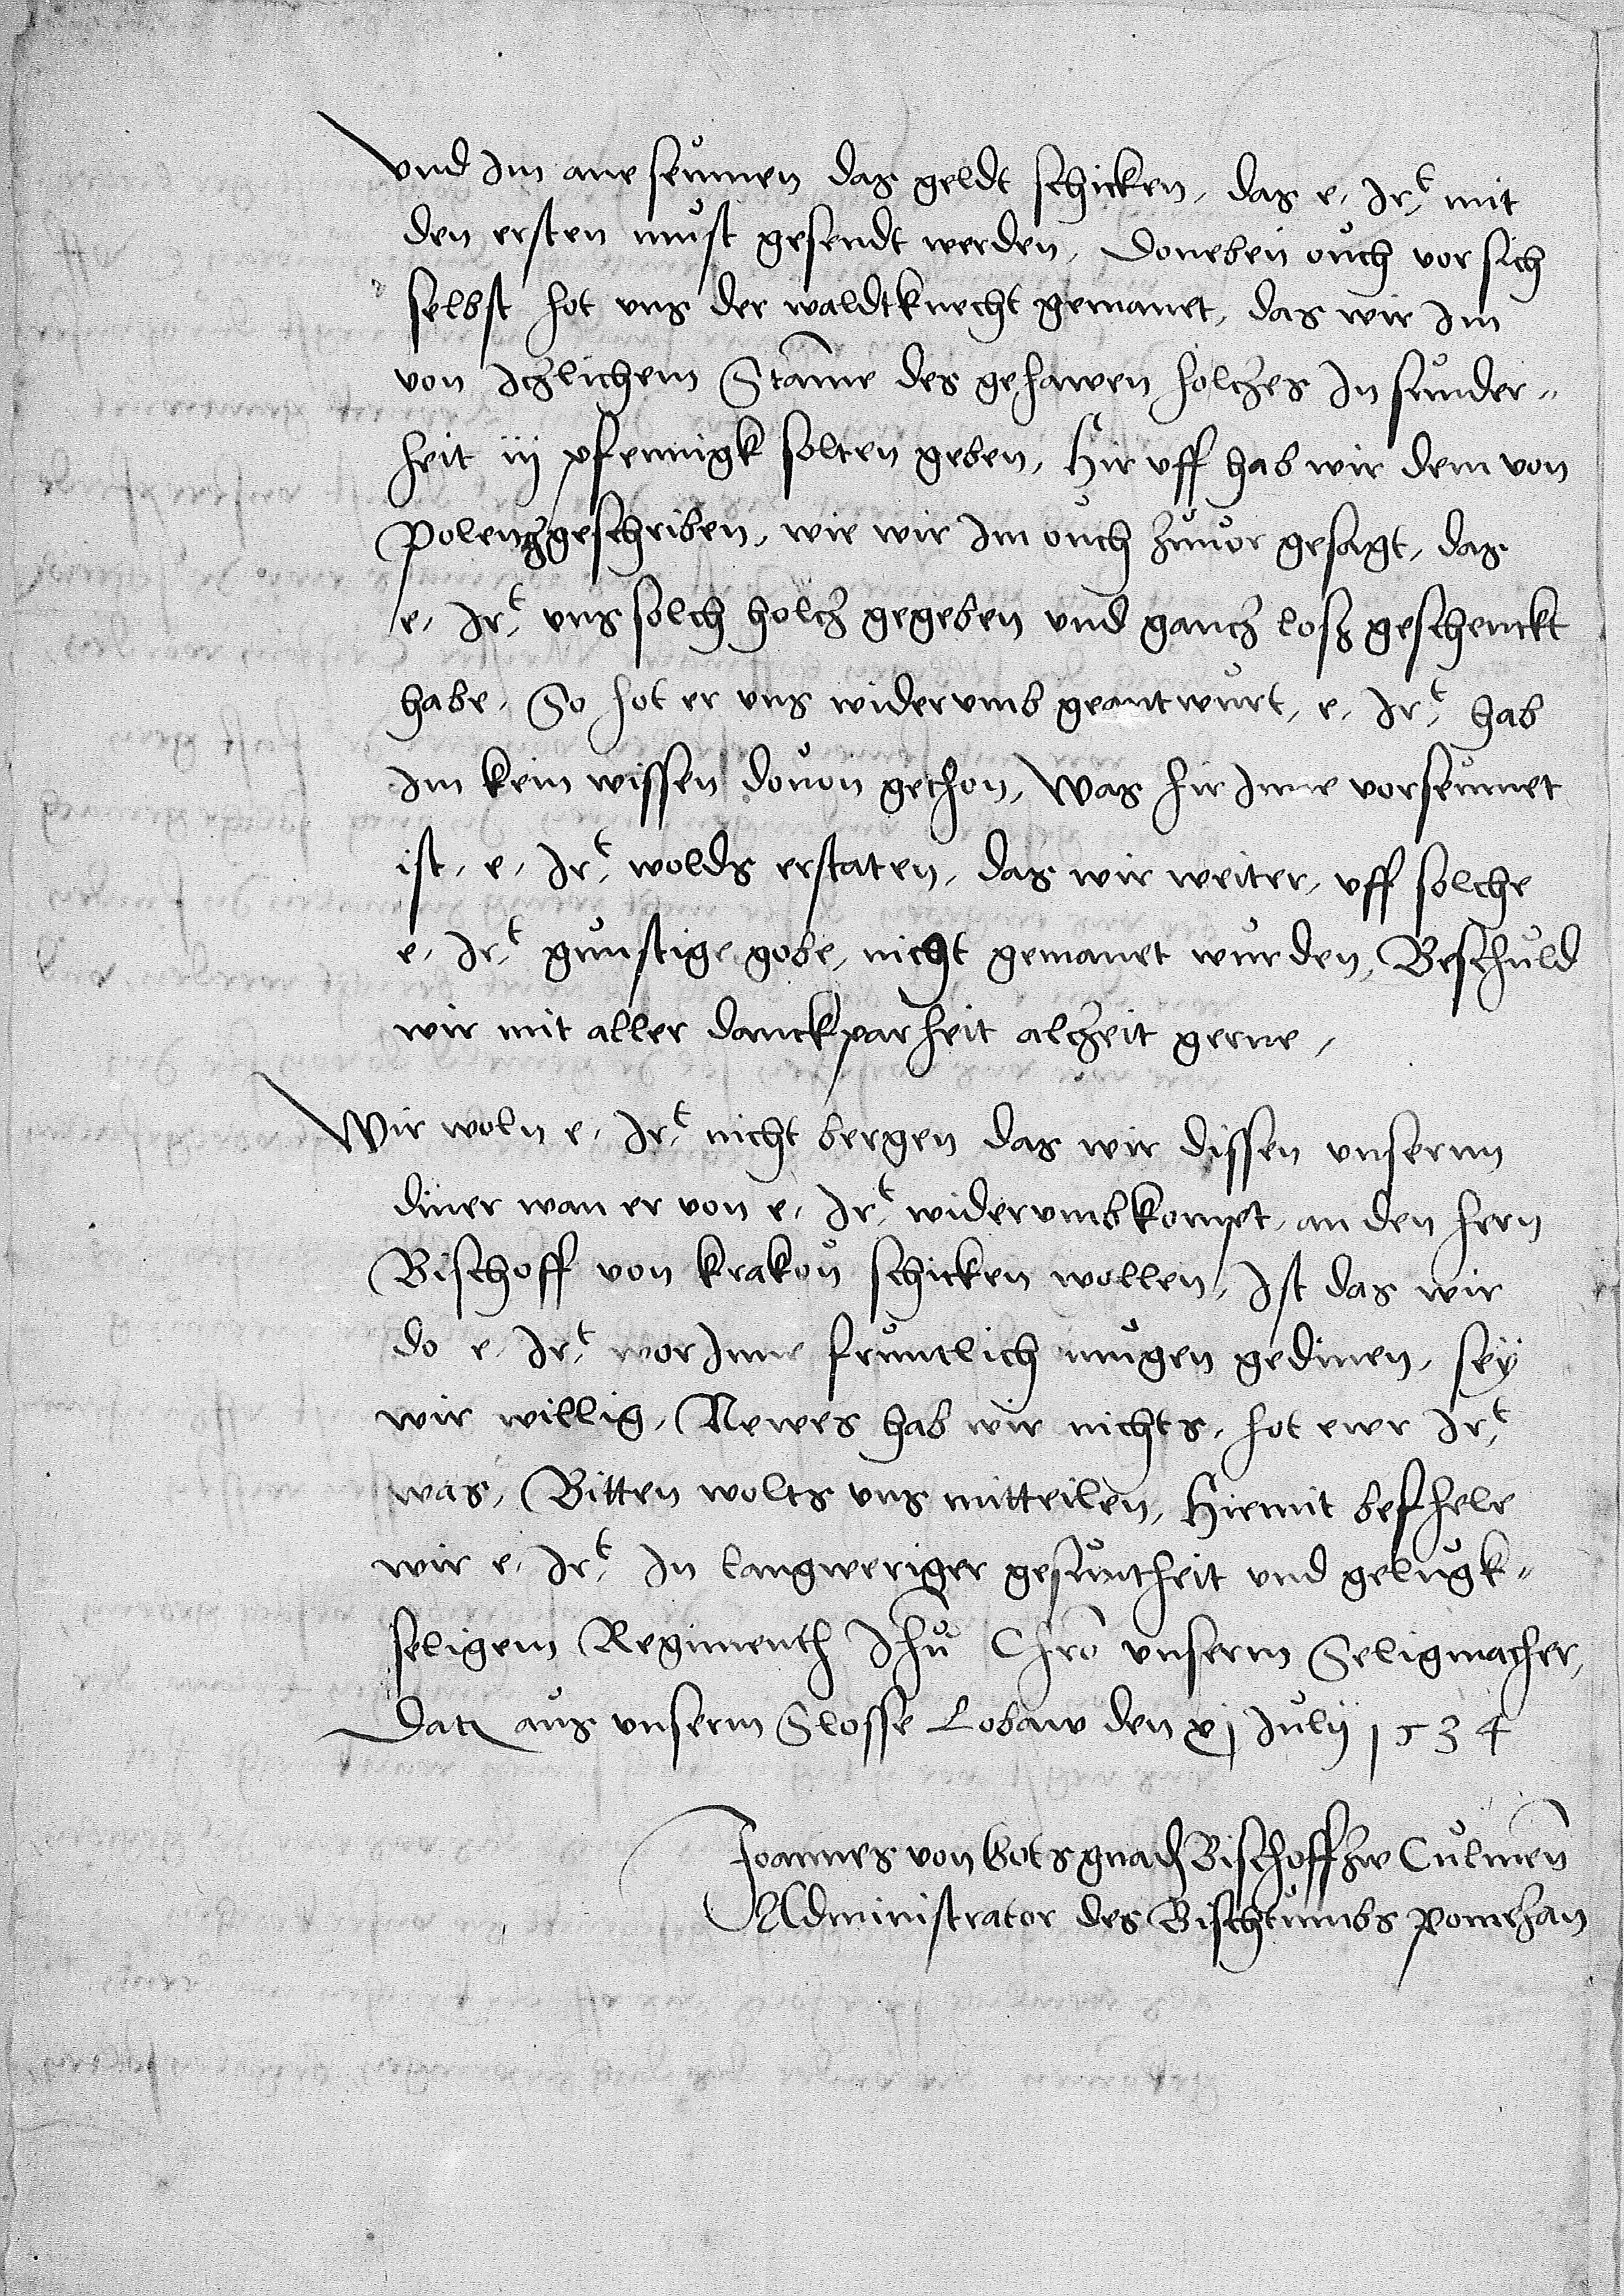 Vnd Im ane seumen das geldt schicken, das e. Ir.t mit
den ersten must gesendt werden, Doneben ouch vor sich
selbst hot vns der waldtknecht gemanet, das wir Im
von Iczlichem Stamme des gehawen holczes In sunder-
heit iij pfennigk solten geben, Hir vff hab wir dem von
Polentz geschriben, wie wir Im ouch zuuor gesagt, das
e. Ir.t vns solch holcz gegeben vnd gancz losz geschenckt
habe, So hot er vns widervmb geantwurt, e. Ir.t hab
Im kein wissen douon gethon, Was hir Inne vorseumet
ist, e. Ir.t wolds erstaten, das wir weiter, vff solche
e. Ir.t gunstige gobe, nicht gemanet wurden, Beschuld
wir mit aller danckparheit alczeit gerne,
Wir woln e. Ir.t nicht bergen das wir dissen vnserm
diner wan er von e. Ir.t widervmbkompt, an den hern
Bischoff von krakou schicken wollen, Ist das wir
do e. Ir.t worInne fruntlich mugen gedinen, sey
wir willig, Newes hab wir nichts, hot ewr Ir.t
was, Bitten wolts vns mitteilen, Hiemit befhele
wir e. Ir.t In langweriger gesuntheit vnd gelugk-
seligem Regimenth Ihu Chro vnserm Seligmacher,
Datz aus vnserm Slosse Lobaw den xj Julij 1534
Joannes von Gots gnad Bischoff zw Culmen
Administrator des Bischtumbs Pomezan